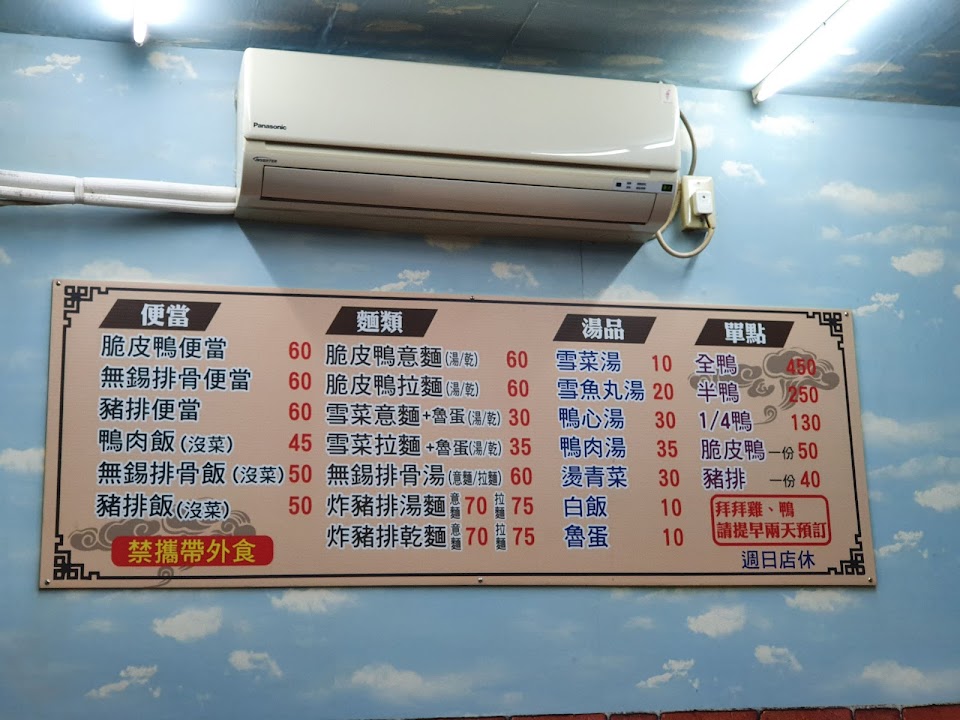 Panasonic
INVERTER
便當
脆皮鴨便當 60
無錫排骨便當 60
豬排便當 60
鴨肉飯(沒菜) 45
無錫排骨飯(沒菜) 50
豬排飯(沒菜) 50
禁攜帶外食
麵類
脆皮鴨意麵(湯/乾) 60
脆皮鴨拉麵(湯/乾) 60
雪菜意麵+魯蛋(湯/乾) 30
雪菜拉麵+魯蛋(湯/乾) 35
無錫排骨湯(意麵/拉麵) 60
炸豬排湯麵 意麵 70 拉麵 75
炸豬排乾麵 意麵 70 拉麵 75
湯品
雪菜湯 10
雪魚丸湯 20
鴨心湯 30
鴨肉湯 35
燙青菜 30
白飯 10
魯蛋 10
單點
全鴨 450
半鴨 250
1/4鴨 130
脆皮鴨 一份 50
豬排 一份 40
拜拜雞、鴨
請提早兩天預訂
週日店休